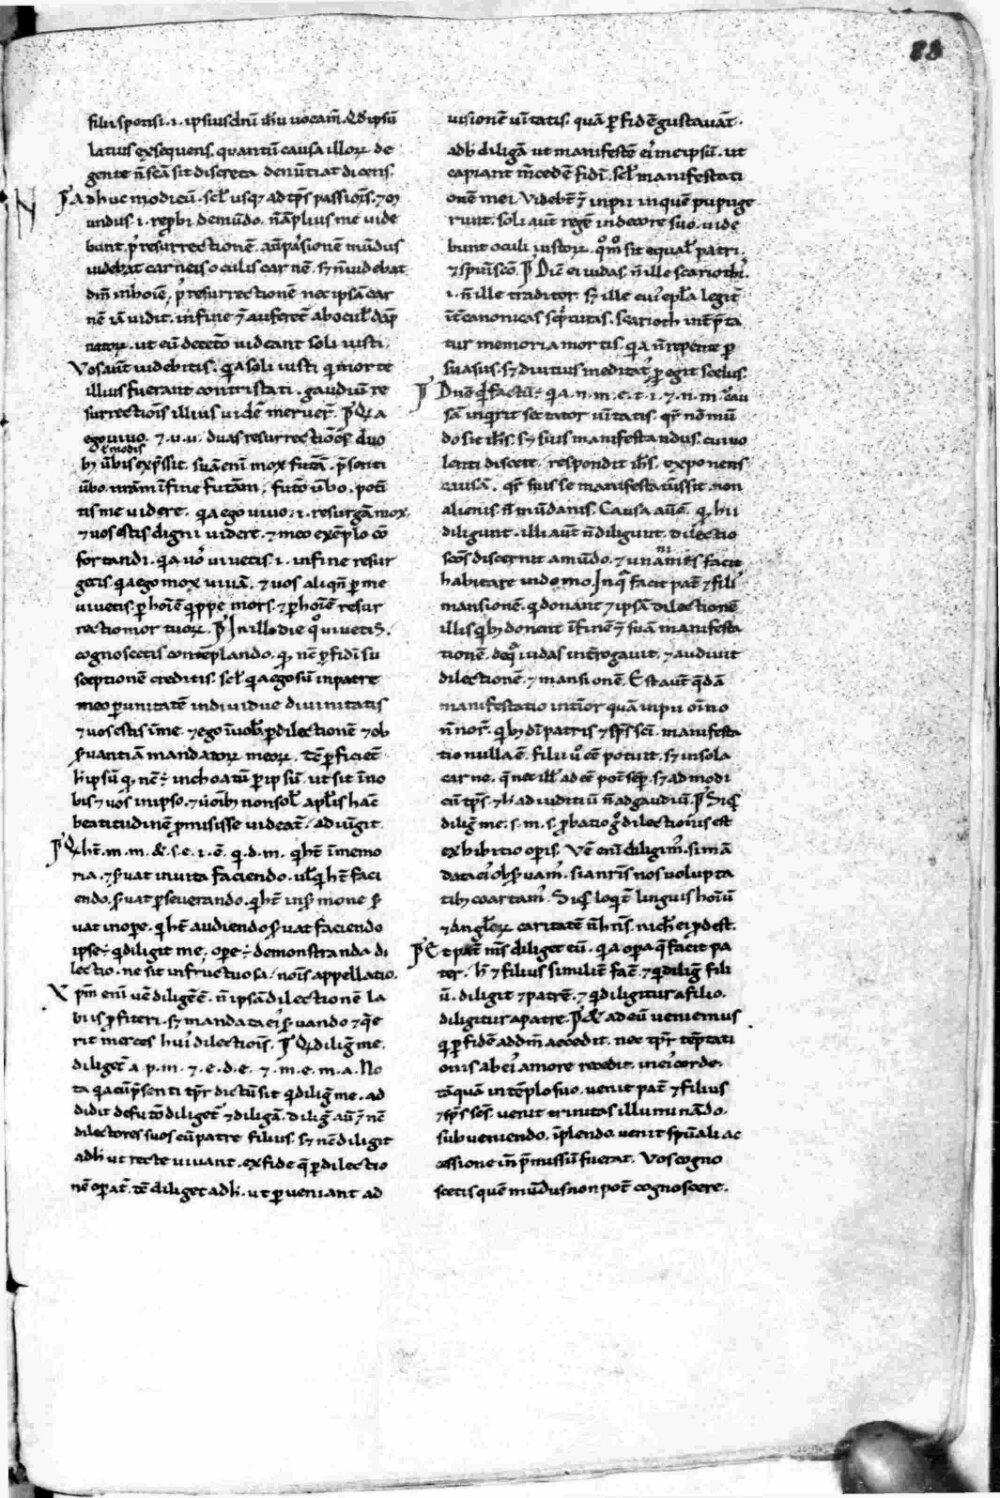 83
filii sponsi .i. ipsius dñi ihu uocam̃. Qd̃ ipsũ
latius exsequens. quantũ causa illoꝝ de
gente ñ scã sit discreta denũtiat dicens.
Adhuc modicũ. scł usqꝫ ad tp̃s passiois̃. ⁊ m
undus .i. rep̃bi de mũdo. ñ ãplius me uide
bunt. p̾ resurrectionẽ. añ passionẽ mũdus
uidebat carneis oculis carnẽ. sꝫ ñ uidebat
dm̃ in hoiẽ. p̾ resurrectionẽ nec ipsã car
nẽ iã uidit. in fine ⁊ auferet̃ ab oculis dãp
natoꝝ. ut eũ decetõ uideant soli iusti.
Vos aut̃ uidebitis. qa soli iusti qi morte
illius fuerant contristati. gaudiũ re
surrectiois̃ illius uidẽ meruer̃. Qa
ego uiuo. ⁊ .u.u. duas resurrectiões duo
de modis
bꝫ ũbis exp̃ssit. suã eni mox futã. p̃senti
ũbo. nrãm ĩ fine futãm. futõ ũbo. pot̃i
tis me uidere. qa ego uiuo .i. resurgã mox.
⁊ uos estis digni uidere. ⁊ meo exẽplo cõ
fortandi. qa uo᷑ uiuetis .i. in fine resur
getis. qa ego mox uiuã. ⁊ uos aliqñ ꝑ me
uiuetis. ꝑ hoiẽ quippe mors. ⁊ ꝑ hoiẽ resur
rectio mortuoꝝ. In illo die qo uiuetis.
cognoscetis contẽplando. q̃ nẽ ꝑ fidi su
sceptionẽ creditis. scł qa ego sũ in patre
meo ꝑ unitatẽ indiuidue diuinitatis
⁊ uos estis ĩ me. ⁊ ego ĩ uob̃ ꝑ dilectionẽ ⁊ ob
s̃uantiã mandatoꝝ meoꝝ. Tc̃ ꝑficiet̃
h̃ ipsũ q̃ nẽ ÷ inchoatũ ꝑ ipsũ. ut sit ĩ no
bis ⁊ uos̃ in ipso. ⁊ ũ oĩbꝫ non sol̃ apłis hãc
beatitudinẽ p̃misisse uideat̃. adiũgit
Q ht̃ .m. m. & .s. e. i. ẽ. q. d. m. q̃ ht̃ ĩ memo
ria. ⁊ s̃uat in uita faciendo. ul̃ q̃ ht̃ faci
endo. s̃uat ꝑseuerando. q̃ ht̃ in s̃mone s̃
uat in oꝑe. q̃ ht̃ audiendo s̃uat faciendo
ipse ÷ q̃ diligit me. oꝑe ÷ demonstranda di
lectio. ne sit infructuosa nois̃ appellatio.
Xpm̃ eni uẽ diligẽẽ. ñ ipsã dilectionẽ la
biis ꝓfiteri. sꝫ mandata ei᷒ s̃uando ⁊ q̃e
rit merces hui᷒ dilectiois̃. Q diliḡ me.
diliget̃ a .p. m. ⁊ .e. d. e. ⁊ .m. e. m. a. No
ta qa cũ p̃senti tp̃r dictũ sit q̃ diliḡ me. ad
didit de futõ diliget̃ ⁊ diligã. diliḡ aũ ⁊ nẽ
dilectores suos cũ patre filius. sꝫ nẽ diligit
ad h̃ ut recte uiuant. ex fide q̃ ꝑ dilectio
nẽ oꝑat̃. tc̃ diliget ad h̃. ut ꝑueniant ad
uisionẽ uĩtatis. quã ꝑ fidẽ gustauãt.
ad h̃ diligã ut manifestẽ ei᷒ me ipsũ. ut
capiant m̃cedẽ fidi. scł manifestati
onẽ mei. Videbt̃ ⁊ inpii in quẽ pupuge
runt. soli aut̃ regẽ in decore suo. uide
bunt oculi iustoꝝ. qm̃o sit equal̃ patri.
⁊ spui sc̃o. Dic̃ ei iudas. ñ ille scariothi᷒.
.i. ñ ille traditor. sꝫ ille cui᷒ epła legit̃
ĩt̃ canonicas scp̃turas. Scarioth int̃p̃ta
tur memoria mortis. qa ñ repente ꝑ
suasus. sꝫ diutius meditat᷒ ꝑegit scelus.
Dñe q̃ factũ ÷ qa .n. m. e. t. i. ⁊ .n. m. cau
sã inqirit sectator uĩtatis. qr̃ nõ mũ
do sit ihs̃. sꝫ suis manifestandus. cui uo
lenti discere. respondit ihs̃. exponens
causã. qr̃ suis se manifestatũ sit. non
alienis. s̃ mũdanis. Causa aũẽ. q̃ hii
diligunt. illi aut̃ ñ diligunt. dilectio
sc̃os discernit a mũdo. ⁊ unamẽs facit
habitare in domo. In q̃ facit pat̃ ⁊ fili᷒
mansionẽ. q̃ donant ⁊ ipsã dilectionẽ
illis qibꝫ donent ĩ fine ⁊ suã manifesta
tionẽ. de qo iudas int̃rogauit. ⁊ audiuit
dilectionẽ ⁊ mansionẽ. Est aut̃ q̃dã
manifestatio int̃ior quã inpii oĩno
ñ nor̃. qibꝫ dĩ patris ⁊ sp̃s sc̃i. manifesta
tio nulla ẽ. filii u᷒ ẽẽ potuit. sꝫ in sola
carne. q̃ nec ill᷒ adẽẽ pot̃ semp̃. sꝫ ad modi
cũ tp̃s. ⁊ h̃ ad iuditiũ ñ ad gaudiũ. Siq̃s
diliḡ me. s. m. s. ꝓbatio ḡ dilectionis est
exhibitio oꝑis. Vẽ eni diligim᷒. si mã
data ei᷒ obs̃uam᷒. si a nr̃is nos uolupta
tibꝫ coartam᷒. Siq̃s loqit̃ linguis hoiũ
⁊ angłoꝝ caritatẽ ñ hñs. nich̃ ei ꝓdest.
Et pat̃ ms̃ diliget eũ. qa oꝑa q̃ facit pa
ter. h̃ ⁊ filius similit̃ facit ⁊ q̃ diliḡ fili
ũ. diligit ⁊ patrẽ. ⁊ q̃ diligitur a filio.
diligitur a patre. & ad eũ ueniemus
q̃ ꝑ fidẽ ad dm̃ accedit. nec tpr̃ tẽptati
onis ab ei᷒ amore recedit. in ei᷒ corde.
tãquã in tẽplo suo. uenit pat̃ ⁊ filius
⁊ sp̃s sc̃s. uenit trinitas illuminãdo.
subueniendo. ĩplendo. uenit spũali ac
cessione ĩ p̃missũ fuerat. Vos cogno
scetis quẽ mũdus non pot̃ cognoscere.